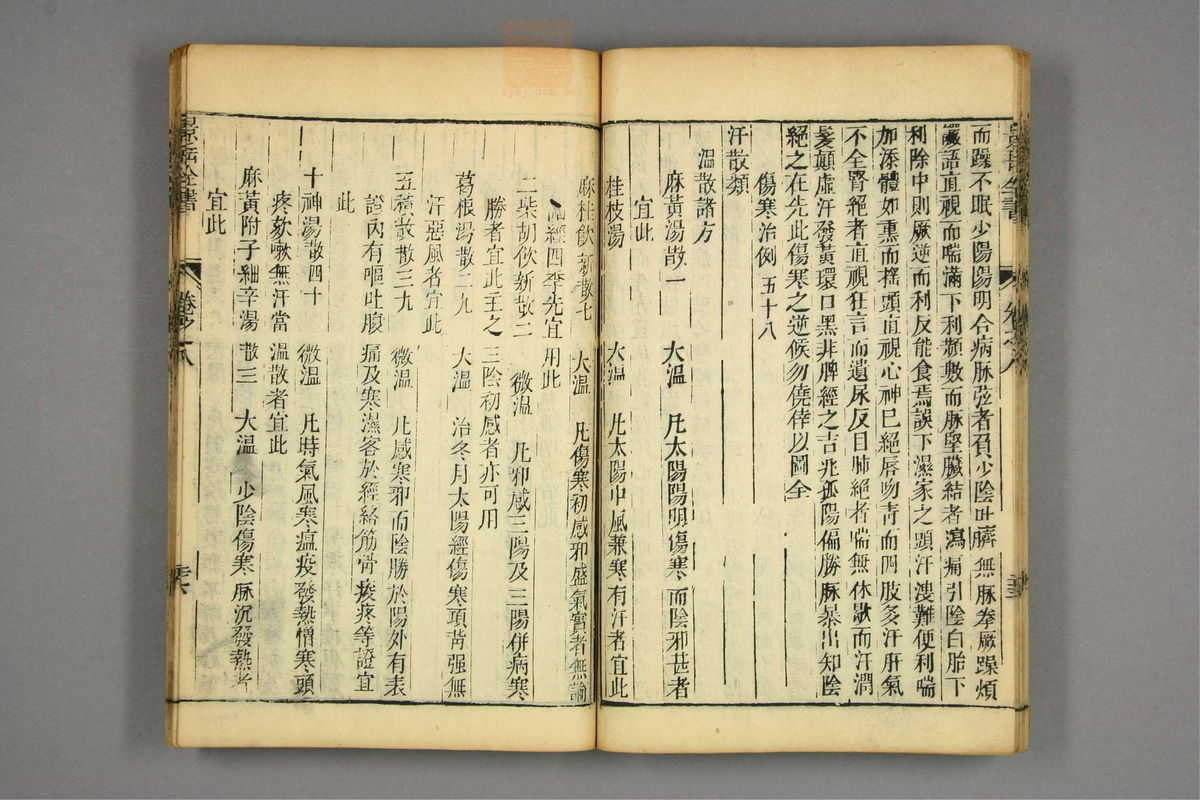 而躁不眠少陽陽明合病脉弦者負少陰吐臍無脉拳厥躁煩
讝語直視而喘滿下利頻數而脉堅臟結者瀉痛引陰白胎下
利除中則厥逆而利反能食焉誤下濕家之頭汗溲難便利喘
加添體如熏而搖頭直視心神已絕唇吻青而四肢多汗肝氣
不全腎絕者直視狂言而遺尿反目肺絕者喘無休歇而汗潤
髮顛虛汗發黃環口黑非脾經之吉兆孤陽偏勝脉暴出知陰
絕之在先此傷寒之逆候勿僥倖以圖全
傷寒治例 五十八
汗散類
溫散諸方
麻黃湯散一 大溫 凡太陽陽明傷寒而陰邪甚者
宜此
桂枝湯 大溫 凡太陽中風兼寒有汗者宜此
麻桂飲新散七 大溫 凡傷寒初感邪盛氣實者無論
諸經四季先宜用此
二柴胡飲新散二 微溫 凡邪感三陽及三陽併病寒
勝者宜此主之三陰初感者亦可用
葛根湯散二九 大溫 治冬月太陽經傷寒項背强無
汗惡風者宜此
五積散散三九 微溫 凡感寒邪而陰勝於陽外有表
證內有嘔吐腹痛及寒濕客於經絡筋骨痠疼等證宜
此
十神湯散四十 微溫 凡時氣風寒瘟疫發熱憎寒頭
疼欬嗽無汗當溫散者宜此
麻黃附子細辛湯散三 大溫 少陰傷寒脉沉發熱者
宜此
景岳全書
卷之八